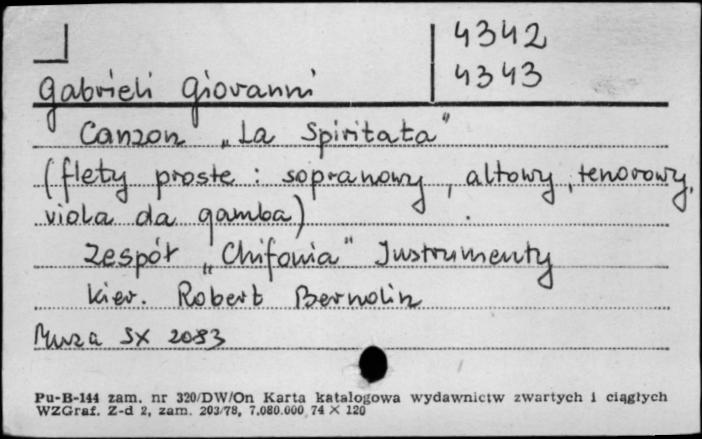 4342
4343
Gabrieli Giovanni
Canzon „La Spiritata"
(flety proste : sopranowy, altowy, tenorowy,
viola da gamba)
Zespół „Chifonia" Instrumenty
kier. Robert Bernolin
Muza SX 2083
Pu-B-144 zam. nr 320/DW/On Karta katalogowa wydawnictw zwartych i ciągłych
WZGraf. Z-d 2, zam. 203/78, 7.080.000 74 × 120